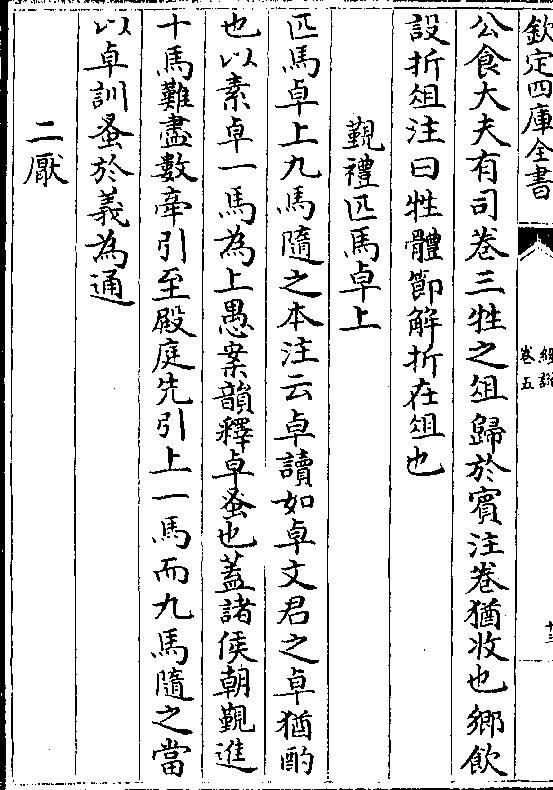 欽定四庫全書
經說
卷五
十三
公食大夫有司卷三牲之俎歸於賓注卷猶收也鄉飲
設折俎注曰牲體節解折在俎也
覲禮匹馬卓上
匹馬卓上九馬隨之本注云卓讀如卓文君之卓猶酌
也以素卓一馬為上愚案韻釋卓蚤也蓋諸侯朝覲進
十馬難盡數牽引至殿庭先引上一馬而九馬隨之當
以卓訓蚤於義為通
二厭